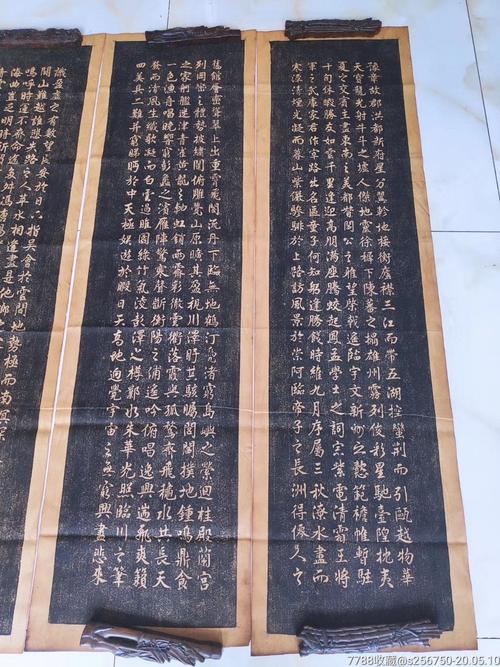 豫章故郡洪都新府星分翼軫地接衡廬襟三江而帶五湖控蠻荊而引甌越物華
天寶龍光射斗牛之墟人傑地靈徐穉下陳蕃之榻雄州霧列俊彩星馳臺隍枕夷
夏之交賓主盡東南之美都督閻公之雅望棨戟遙臨宇文新州之懿範襜帷暫駐
十旬休暇勝友如雲千里逢迎高朋滿座騰蛟起鳳孟學士之詞宗紫電清霜王將
軍之武庫家君作宰路出名區童子何知躬逢勝餞時維九月序屬三秋潦水盡而
寒潭清煙光凝而暮山紫儼驂騑於上路訪風景於崇阿臨帝子之長洲得僊人之
舊館層巒聳翠上出重霄飛閣流丹下臨無地鶴汀鳧渚窮島嶼之縈迴桂殿蘭宮
列岡巒之體勢披繡闥俯雕甍山原曠其盈視川澤盱其駭矚閭閻撲地鍾鳴鼎食
之家舸艦迷津青雀黃龍之軸虹銷雨霽彩徹雲衢落霞與孤鶩齊飛秋水共長天
一色漁舟唱晚響窮彭蠡之濱雁陣驚寒聲斷衡陽之浦遙吟俯唱逸興遄飛爽籟
發而清風生纖歌凝而白雲遏睢園綠竹氣淩彭澤之樽鄴水朱華光照臨川之筆
四美具二難并窮睇眄於中天極娛遊於暇日天高地迥覺宇宙之無窮興盡悲來
識盈虛之有數望長安於日下指吳會於雲間地勢極而南溟深
關山難越誰悲失路之人萍水相逢盡是他鄉之
嗚呼時運不齊命途多舛馮唐易
海曲豈乏明時所
7788收藏@s256750-20.05.10